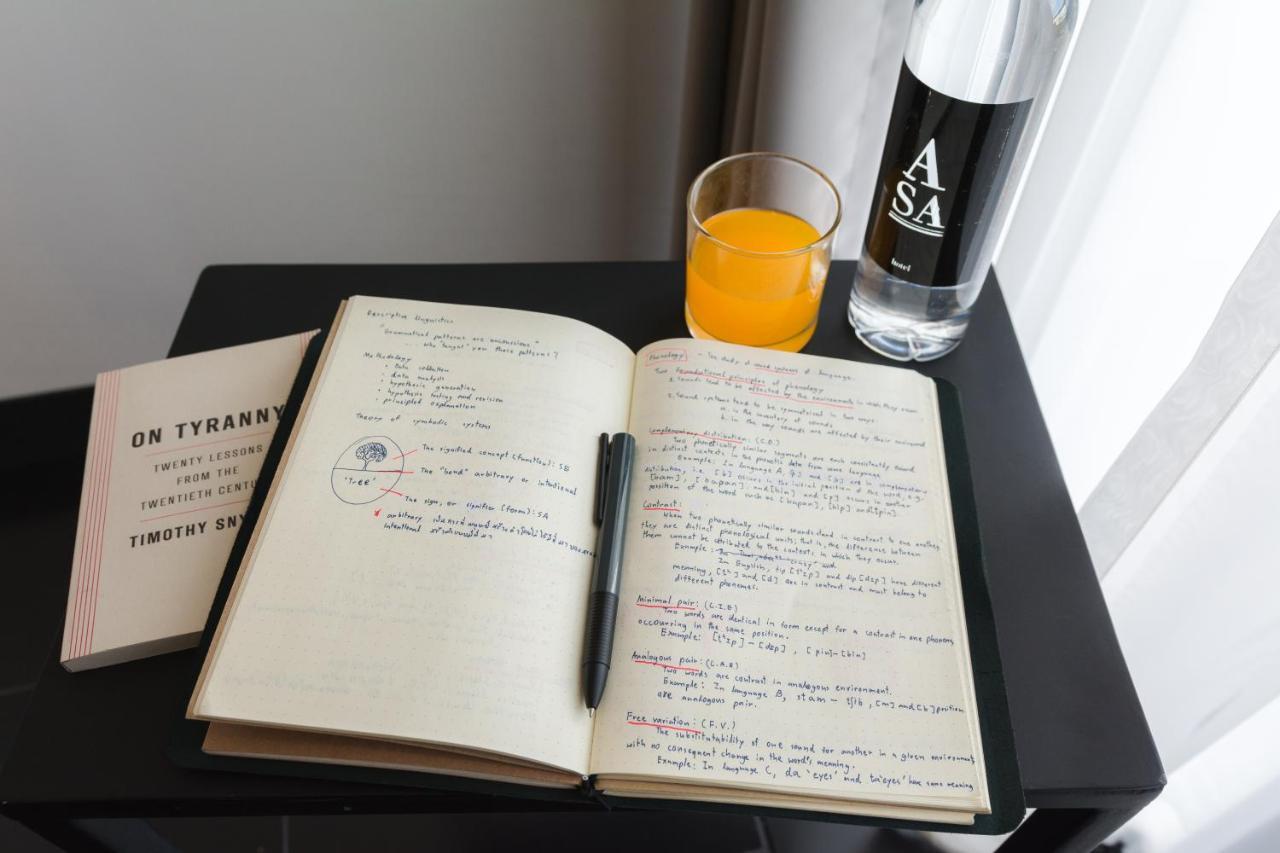 ON TYRANNY
TWENTY LESSONS
FROM THE
TWENTIETH CENTU
TIMOTHY SNY
Descriptive linguistics
"Grammatical patterns are unconscious."
who "taught" you these patterns?
Methodology
• Data collection
• data analysis
• hypothesis generation
• hypothesis testing and revision
• principled explanation
Theory of symbolic systems
The signified concept (function): SB
The "bond" arbitrary or intentional
'Tree'
The sign, or signifier (form): SA
arbitrary
intentional
Phonology - The study of sound systems of language.
Two foundational principles of phonology
1. Sounds tend to be affected by the environments in which they occur.
2. Sound systems tend to be symmetrical in two ways:
a. in the inventory of sounds
b. in the way sounds are affected by their environment
Complementary distribution: (C.D.)
Two phonetically similar segments are each consistently found
in distinct contexts in the phonetic data from some language.
Example: In language A, and are in complementary
distribution, i.e. [b] occurs in the initial position of the word, e.g.
and [bin] and [p] occurs in another
position of the word such as and
Contrast:
When two phonetically similar sounds stand in contrast to one another
they are distinct phonological units; that is, the difference between
them cannot be attributed to the contexts in which they occur.
Example:
In English, tip [tʰɪp] and dip [dɪp] have different
meaning, [tʰ] and [d] are in contrast and must belong to
different phonemes.
Minimal pair: (C.I.E)
Two words are identical in form except for a contrast in one phoneme
occourring in the same position.
Example: [tʰɪp] - [dɪp] , [pin] - [bin]
Analogous pair: (C.A.E)
Two words are contrast in analogous environment.
Example: In language B, stam - , [m] and [b] position
are analogous pair.
Free variation: (F.V.)
The substitutability of one sound for another in a given environment
with no consequent change in the word's meaning.
Example: In language C, da 'eyes' and ta 'eyes' have same meaning
A
SA
hotel